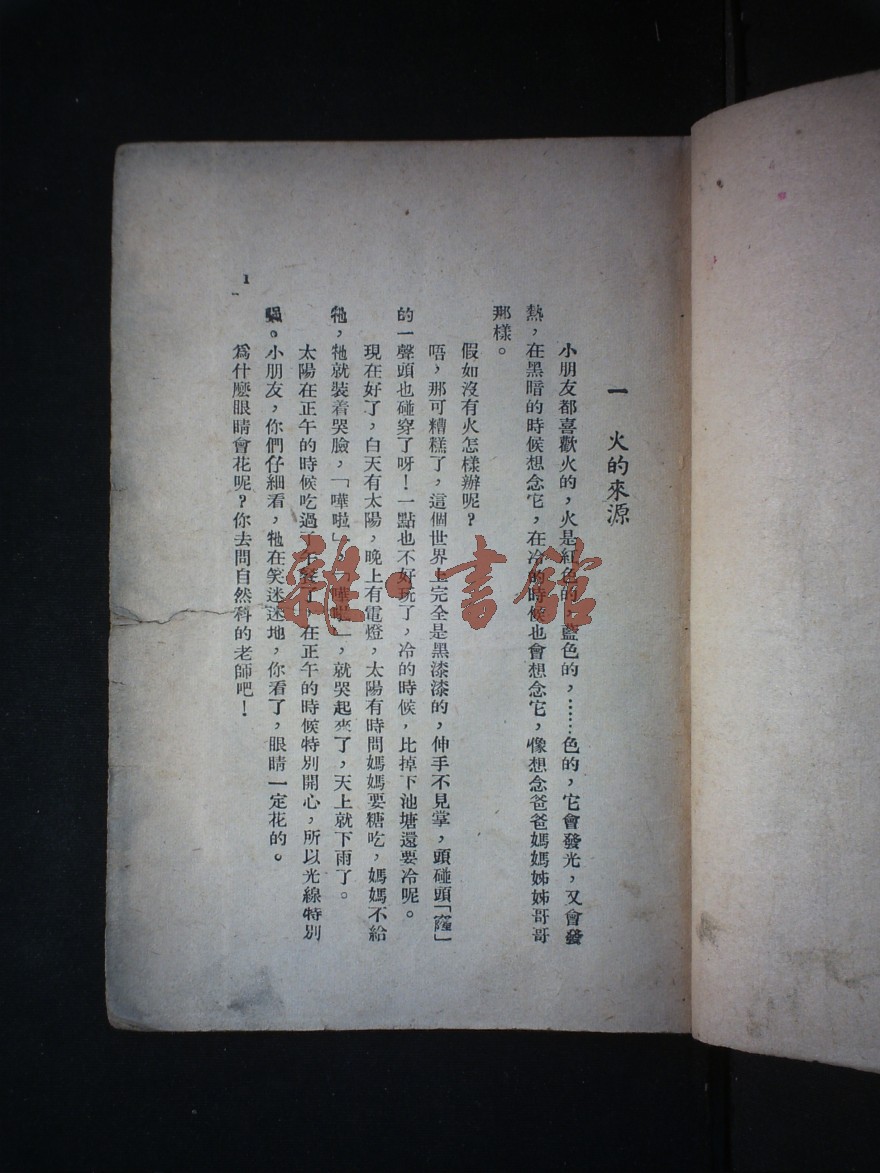 一　火的來源
小朋友都喜歡火的，火是紅色的，藍色的，……色的，它會發光，又會發
熱，在黑暗的時候想念它，在冷的時候也會想念它，像想念爸爸媽媽姊姊哥哥
那樣。
假如沒有火怎樣辦呢？
唔，那可糟糕了，這個世界上完全是黑漆漆的，伸手不見掌，頭碰頭「窿」
的一聲頭也碰穿了呀！一點也不好玩了，冷的時候，比掉下池塘還要冷呢。
現在好了，白天有太陽，晚上有電燈，太陽有時問媽媽要糖吃，媽媽不給
牠，牠就裝着哭臉，「嘩啦」，「嘩啦」，就哭起來了，天上就下雨了。
太陽在正午的時候吃過了午餐了，在正午的時候特別開心，所以光線特別
強。小朋友，你們仔細看，牠在笑迷迷地，你看了，眼睛一定花的。
爲什麼眼睛會花呢？你去問自然科的老師吧！
1
雜·書館